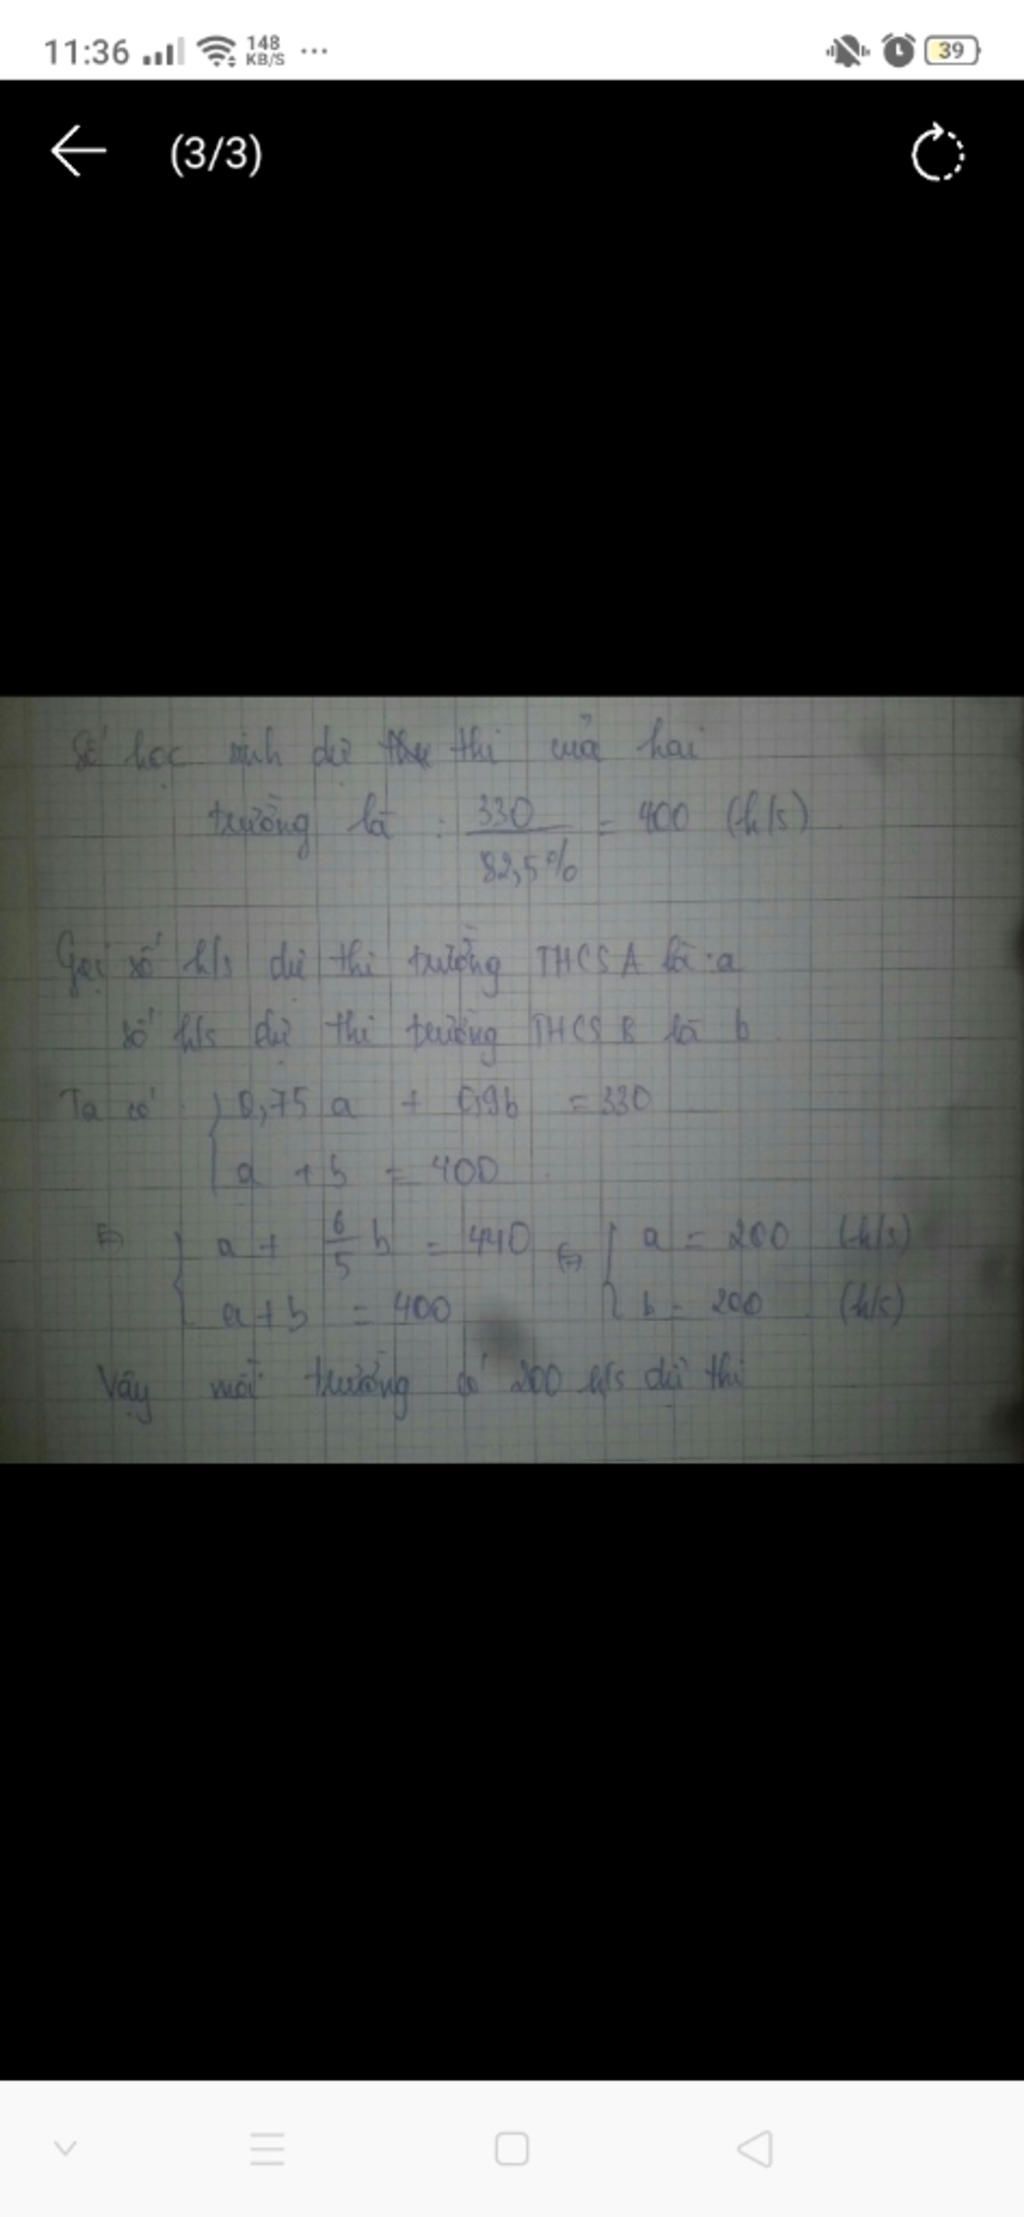 11:36 148 KB/S ... 39
(3/3)
Số học sinh dự thi của hai
trường là : 330 / 82,5% = 400 (h/s)
Gọi số h/s dự thi trường THCS A là : a
số h/s dự thi trường THCS B là b
Ta có { 0,75 a + 0,9b = 330
a + b = 400
⇔ { a + 6/5 b = 440 ⇔ { a = 200 (h/s)
a + b = 400 b = 200 (h/s)
Vậy mỗi trường có 200 h/s dự thi